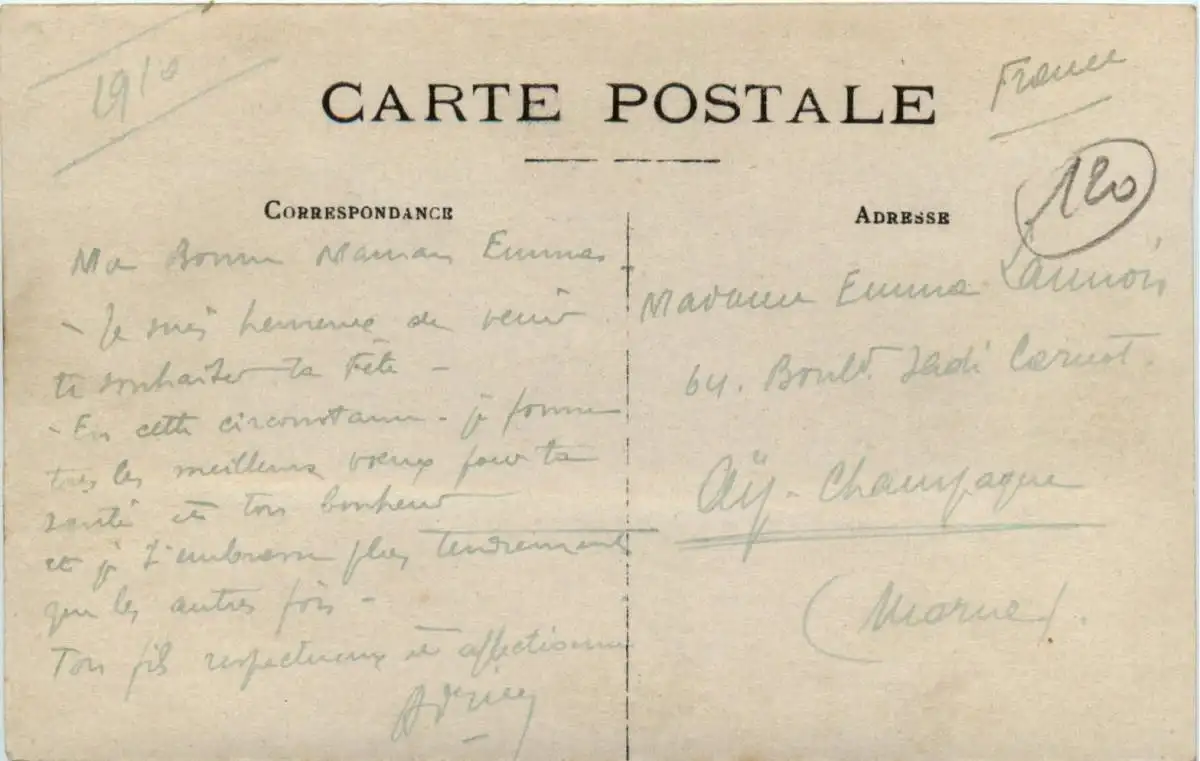 1910
France
CARTE POSTALE
120
CORRESPONDANCE
ADRESSE
Ma Bonne Maman Emma
- Je suis heureux de venir
te souhaiter ta Fête -
- En cette circonstance - je forme
tous les meilleurs voeux pour ta
santé et ton bonheur
et je t'embrasse plus tendrement
que les autres fois -
Ton fils respectueux et affectionné
Madame Emma Lannois
64. Boulvd. Sadi Carnot.
Aÿ-Champagne
(Marne).